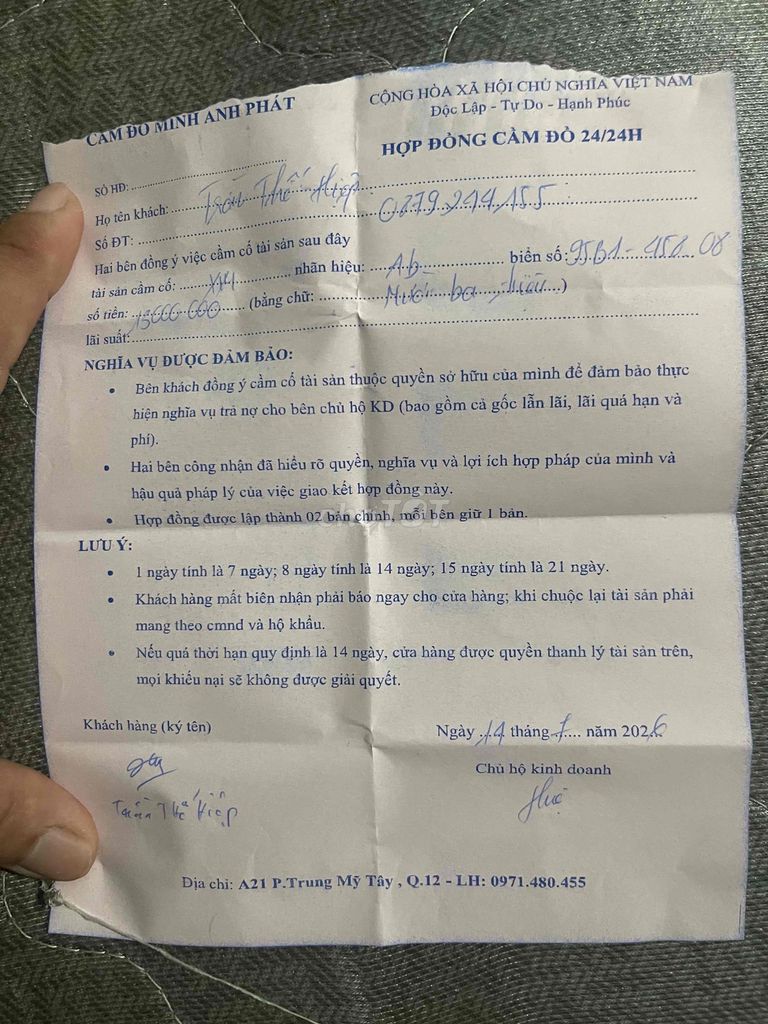 CẦM ĐỒ MINH ANH PHÁT
CỘNG HÒA XÃ HỘI CHỦ NGHĨA VIỆT NAM
Độc Lập - Tự Do - Hạnh Phúc
HỢP ĐỒNG CẦM ĐỒ 24/24H
SỐ HĐ:
Họ tên khách: Trần Thế Hiệp
Số ĐT: 0379.244.155
Hai bên đồng ý việc cầm cố tài sản sau đây
tài sản cầm cố: XM nhãn hiệu: Ab biển số: 95B1-451.08
số tiền: 13000 000 (bằng chữ: Mười ba triệu)
lãi suất:
NGHĨA VỤ ĐƯỢC ĐẢM BẢO:
• Bên khách đồng ý cầm cố tài sản thuộc quyền sở hữu của mình để đảm bảo thực
hiện nghĩa vụ trả nợ cho bên chủ hộ KD (bao gồm cả gốc lẫn lãi, lãi quá hạn và
phí).
• Hai bên công nhận đã hiểu rõ quyền, nghĩa vụ và lợi ích hợp pháp của mình và
hậu quả pháp lý của việc giao kết hợp đồng này.
• Hợp đồng được lập thành 02 bản chính, mỗi bên giữ 1 bản.
LƯU Ý:
• 1 ngày tính là 7 ngày; 8 ngày tính là 14 ngày; 15 ngày tính là 21 ngày.
• Khách hàng mất biên nhận phải báo ngay cho cửa hàng; khi chuộc lại tài sản phải
mang theo cmnd và hộ khẩu.
• Nếu quá thời hạn quy định là 14 ngày, cửa hàng được quyền thanh lý tài sản trên,
mọi khiếu nại sẽ không được giải quyết.
Khách hàng (ký tên)
Ngày 14 tháng 1 năm 2026
Chủ hộ kinh doanh
Trần Thế Hiệp
Huệ
Địa chỉ: A21 P.Trung Mỹ Tây , Q.12 - LH: 0971.480.455